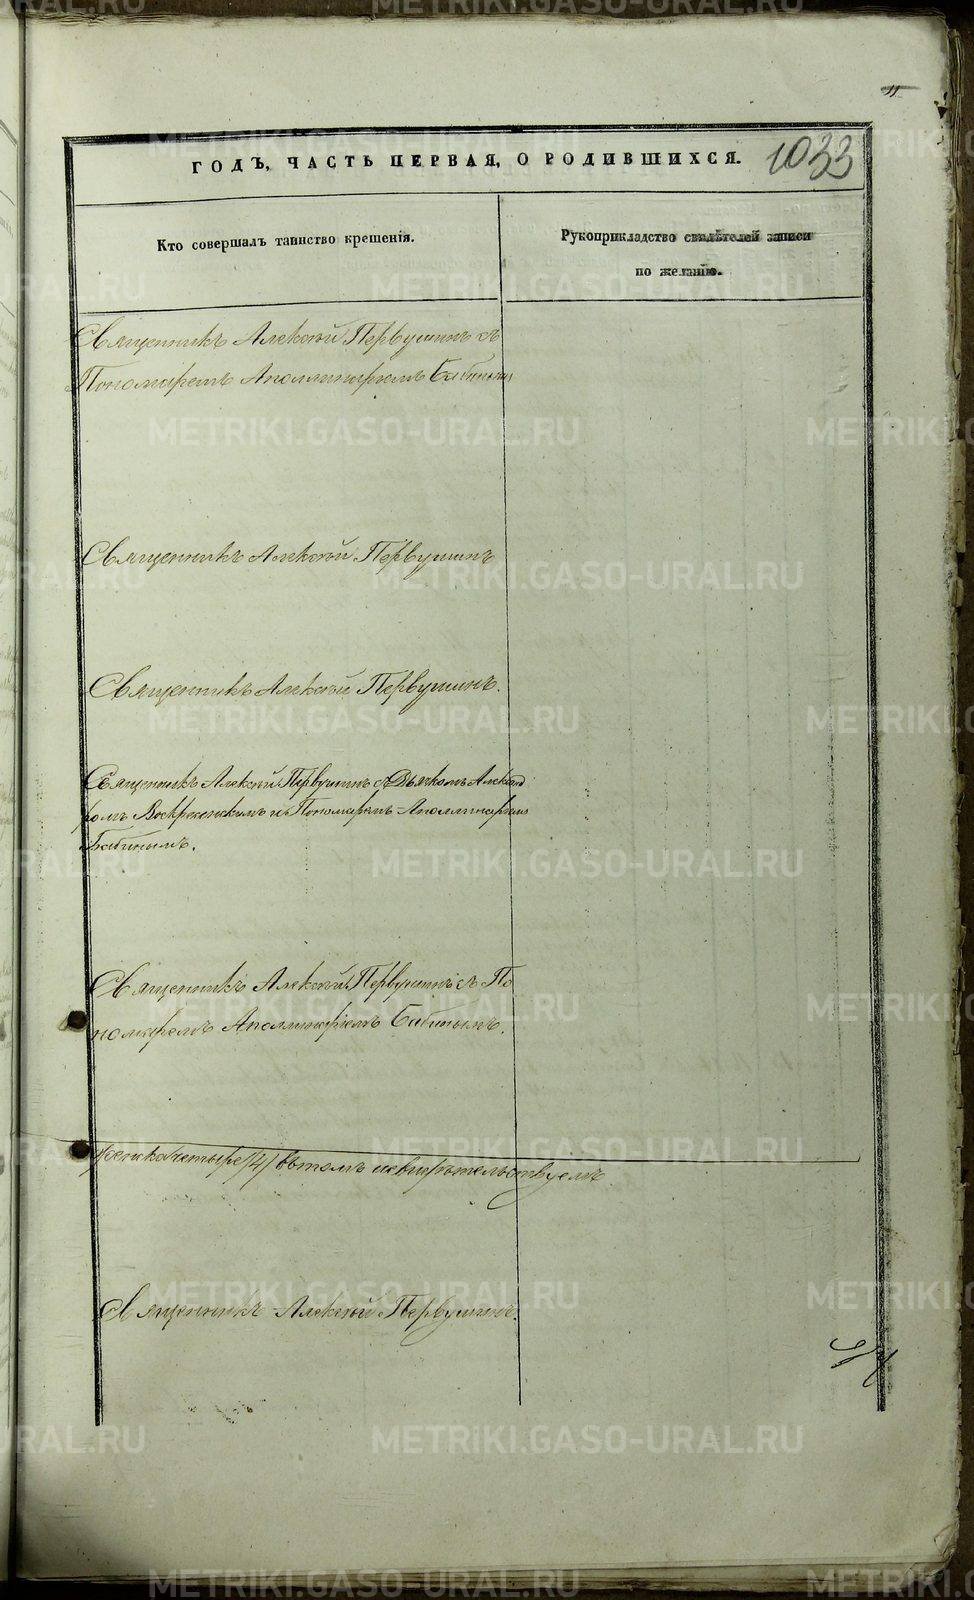 11
ГОДЪ, ЧАСТЬ ПЕРВАЯ, О РОДИВШИХСЯ.
1033
Кто совершалъ таинство крещенія.
Рукоприкладство свидѣтелей записи
по желанію.
Священникъ Алексѣй Первушинъ съ
Пономаремъ Аполлинаріемъ Бабинымъ
Священникъ Алексѣй Первушинъ
Священникъ Алексѣй Первушинъ.
Священникъ Алексѣй Первушинъ съ Дьячкомъ Александ
ромъ Воскресенскимъ и Пономаремъ Аполлинаріемъ
Бабинымъ.
Священникъ Алексѣй Первушинъ съ По
номаремъ Аполлинаріемъ Бабинымъ.
четыре /4/ въ томъ свидѣтельствуемъ
Священникъ Алексѣй Первушинъ.
METRIKI.GASO-URAL.RU